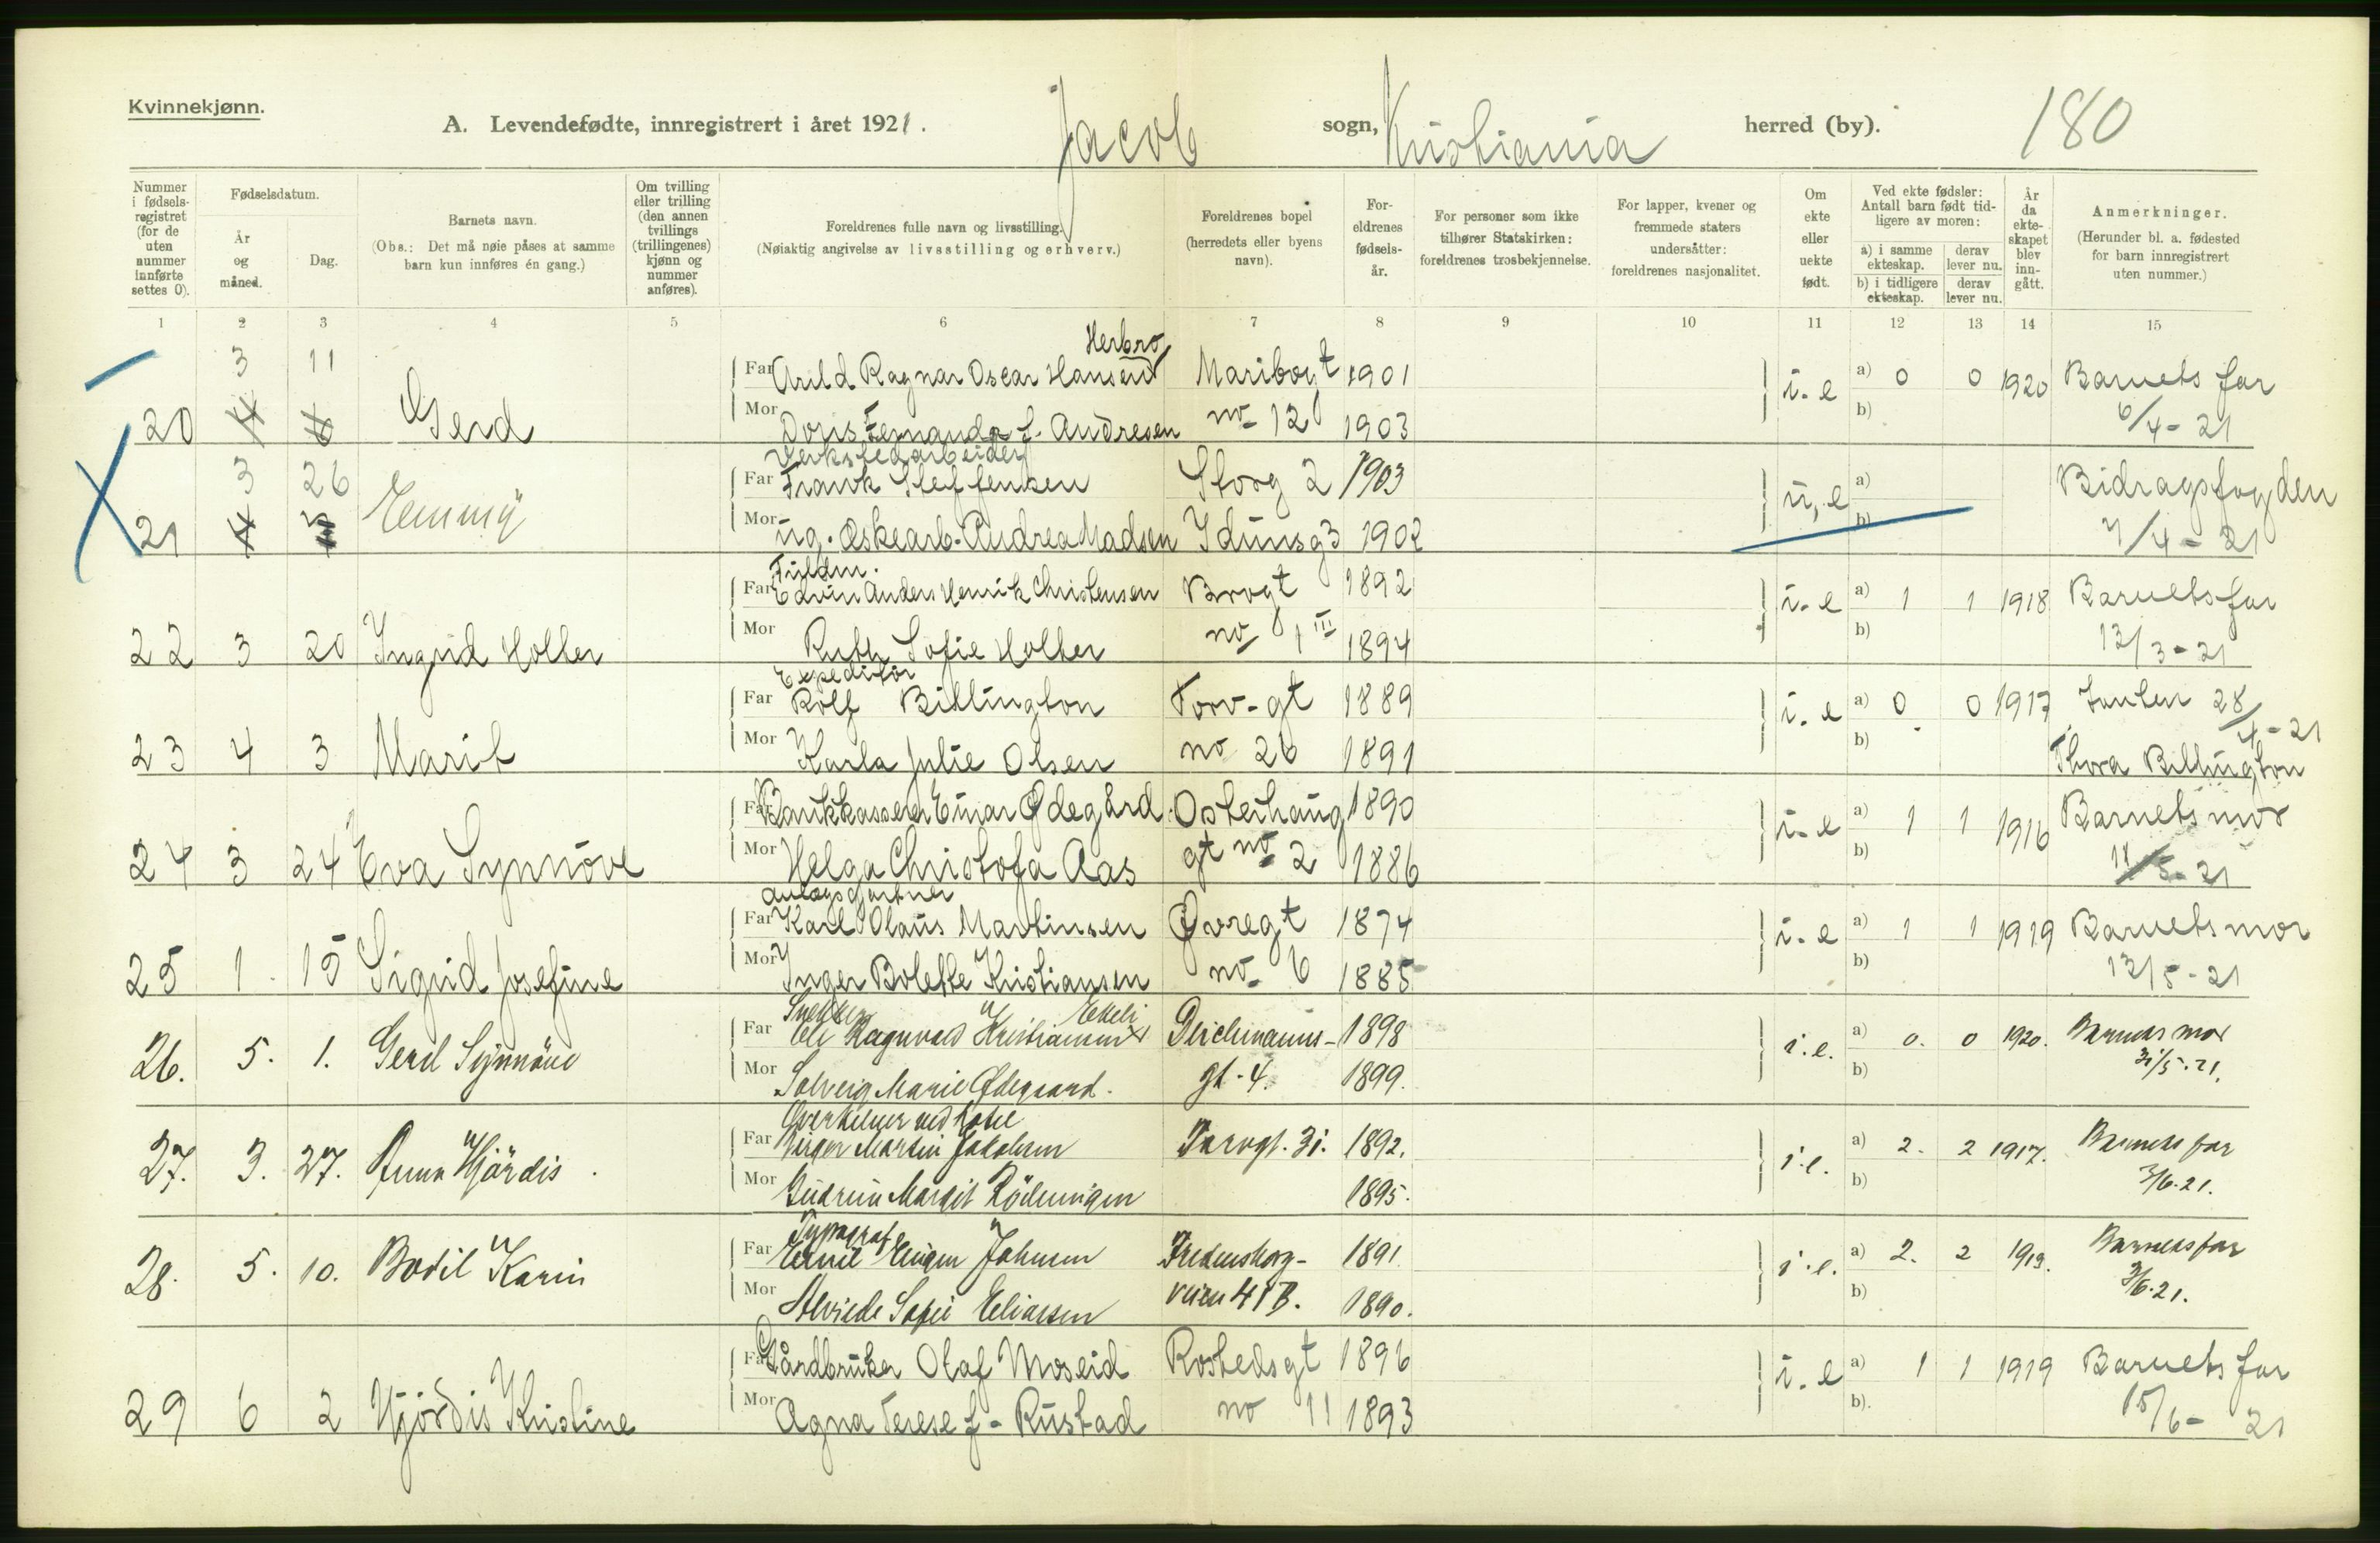 Kvinnekjønn.
A. Levendefødte, innregistrert i året 1921. Jacob sogn, Kristiania herred (by). 180
Nummer i fødselsregistret (for de uten nummer innførte settes 0).
Fødselsdatum.
År og måned.
Dag.
Barnets navn.
(Obs.: Det må nøie påses at samme barn kun innføres én gang.)
Om tvilling eller trilling (den annen tvillings (trillingenes) kjønn og nummer anføres).
Foreldrenes fulle navn og livsstilling.
(Nøiaktig angivelse av livsstilling og erhverv.)
Foreldrenes bopel (herredets eller byens navn).
Foreldrenes fødselsår.
For personer som ikke tilhører Statskirken: foreldrenes trosbekjennelse.
For lapper, kvener og fremmede staters undersåtter: foreldrenes nasjonalitet.
Om ekte eller uekte født.
Ved ekte fødsler: Antall barn født tidligere av moren:
a) i samme ekteskap. derav lever nu.
b) i tidligere ekteskap. derav lever nu.
År da ekteskapet blev inngått.
Anmerkninger.
(Herunder bl. a. fødested for barn innregistrert uten nummer.)
1 2 3 4 5 6 7 8 9 10 11 12 13 14 15
Herbro
3 11 Far Arild Ragnar Oscar Hansen Maribogt 1901 i. e a) 0 0 1920 Barnets far
20 4 6 Gerd Mor Doris Fernanda f. Andresen no 12 1903 b) 6/4-21
Verkstedarbeider
3 26 Far Frank Steffensen Storg 2 1903 u, e a) Bidragsfogden
21 4 Emmy Mor ug. Eskearb. Andrea Madsen Idunsg 3 1902 b) 7/4-21
Fuldm.
Far Edvin Anders Henrik Christensen Brogt 1892 i. e a) 1 1 1918 Barnets far
22 3 20 Ingrid Holter Mor Ruth Sofie Holter no 1 III 1894 b) 12/3-21
Expeditør
Far Rolf Billington Torv-gt 1889 i. e a) 0 0 1917 Tanten 28/4-21
23 4 3 Marit Mor Karla Julie Olsen no 26 1891 b) Thora Billington
Far Bankkasserer Einar Ødegård Osterhaug 1890 i. e a) 1 1 1916 Barnets mor
24 3 24 Eva Synnöve Mor Helga Christofa Aas gt no 2 1886 b) 11/5-21
Anlægsgartner
Far Karl Olaus Martinsen Øvregt 1874 i. e a) 1 1 1919 Barnets mor
25 1 15 Sigrid Josefine Mor Inger Bolette Kristiansen no 6 1885 b) 12/5-21
Snekker Ekeli
Far Ole Ragnvald Kristiansen Deichmanns- 1898 i. e. a) 0. 0 1920. Barnets mor
26. 5. 1. Gerd Synnöve Mor Solveig Marie Ødegaard. gt. 4. 1899. b) 31/5.21.
Overkelner ved hotel
Far Birger Martin Jakobsen Torvgt. 31. 1892. i. e. a) 2. 2 1917. Barnets far
27. 3. 27. Anna Hjördis. Mor Gudrun Margit 1895. b) 3/6.21.
Typograf
Far Emil Eugen Johnsen Fredensborg- 1891. i. e. a) 2. 2 1913. Barnets far
28. 5. 10. Bodil Karin Mor Alvilde Sofie Eliassen veien 41 B. 1890. b) 3/6.21.
Far Gårdbruker Olaf Moseid Rostedsgt 1896 i. e a) 1 1 1919 Barnets far
29 6 2 Hjördis Kristine Mor Agna Terese f- Rustad no 11 1893 b). 15/6-21